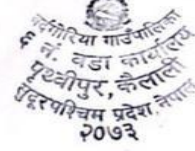 बर्दगोरिया गाउँपालिका
६ नं. वडा कार्यालय
पृथ्वीपुर, कैलाली
सुदूरपश्चिम प्रदेश, नेपाल
२०७३